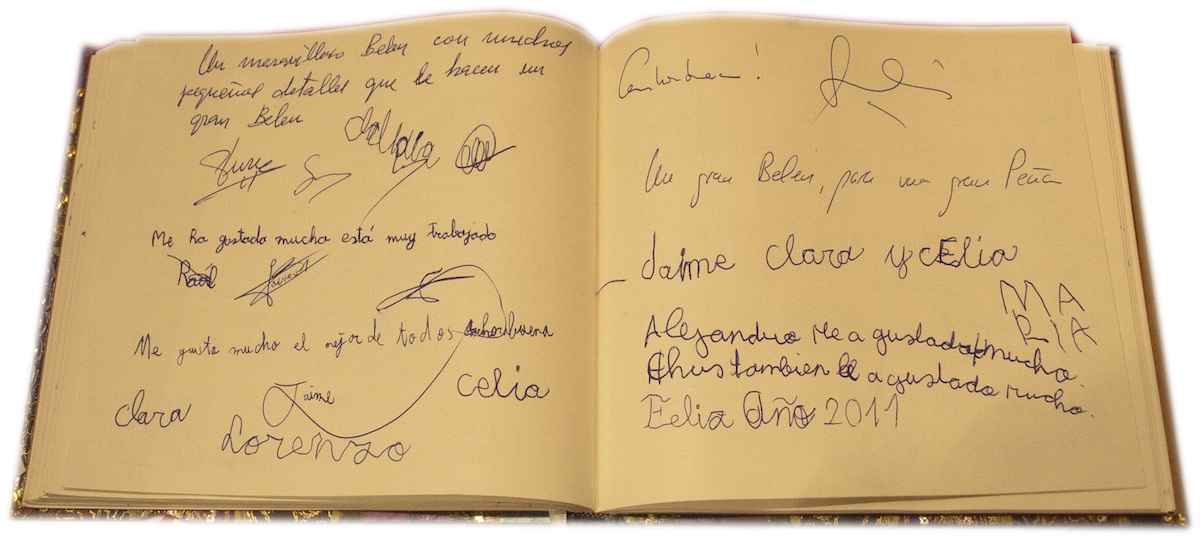 Un maravilloso Belen con muchos
pequeños detalles que le hacen un
gran Belen
Me ha gustado mucho está muy trabajado
Raúl Javier
Me gusta mucho el mejor de todos enhorabuena
Clara Jaime Celia
Lorenzo
Enhorabuena!
Un gran Belen, para una gran Peña
Jaime Clara y CElia
MA
RIA
Alejandro Me a gustado mucho.
Ahus tambien le a gustado mucho.
Feliz Año 2011